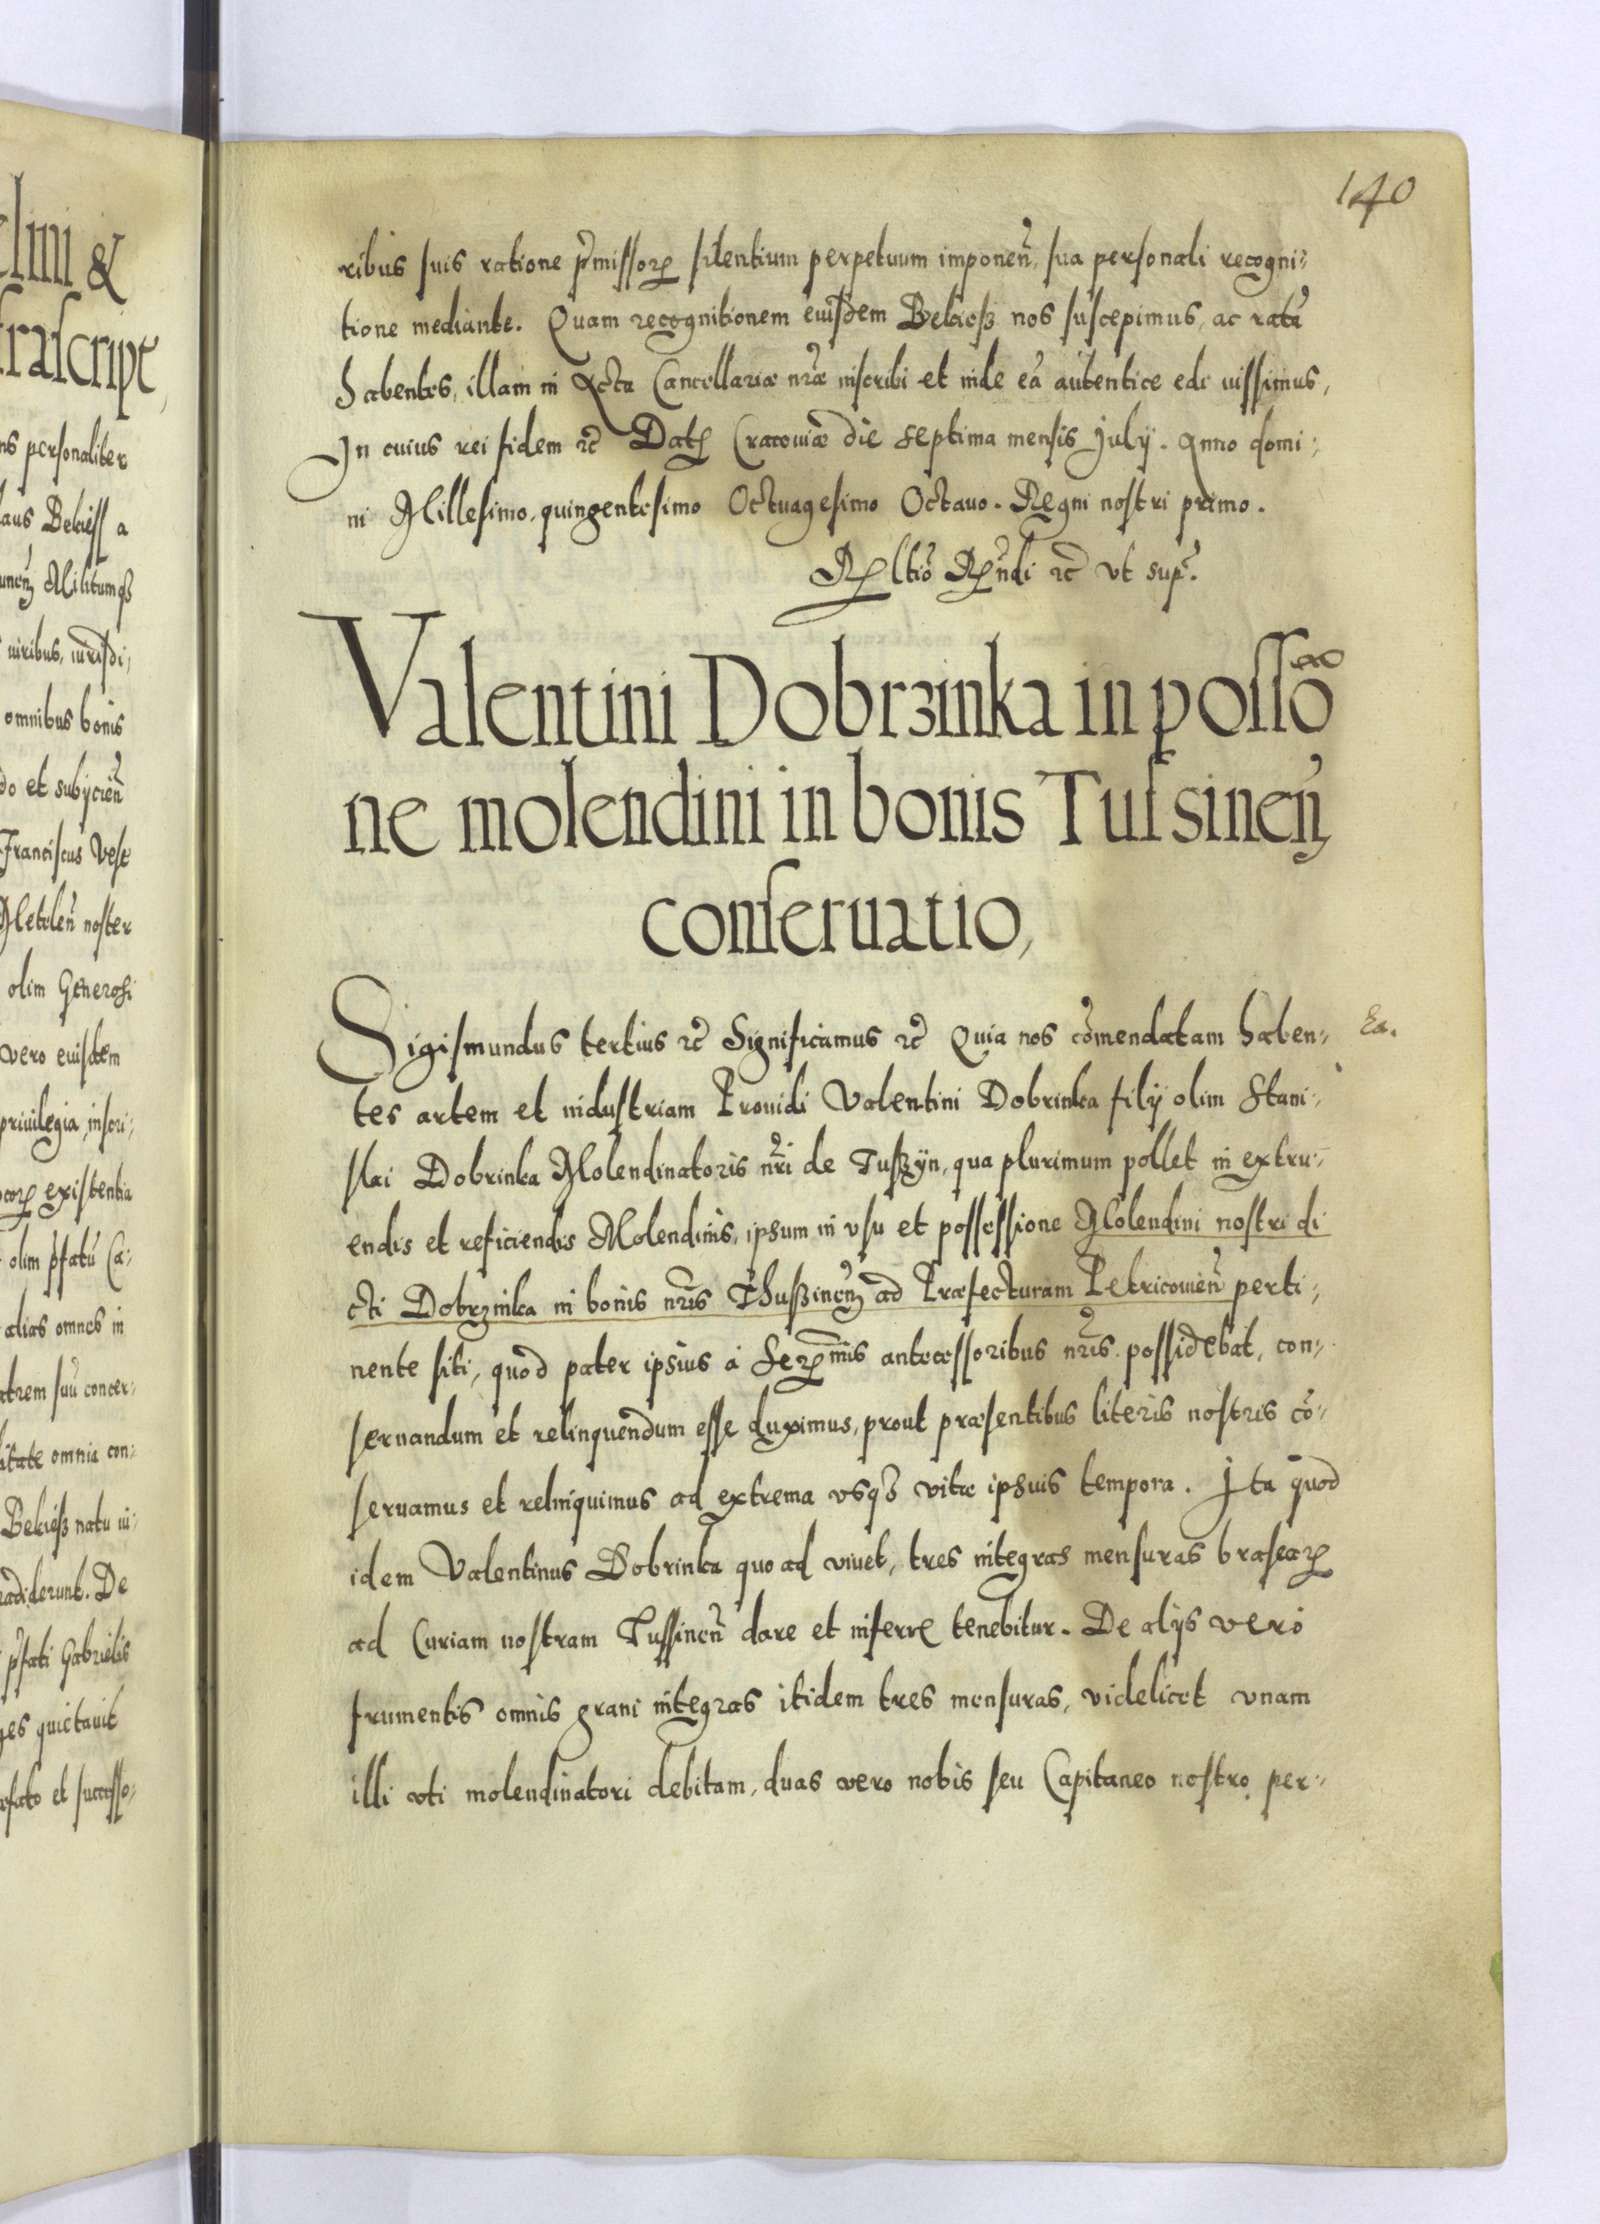 elmi &
frascript,
ns personaliter
laus Bekiess a
unen Militumqȝ
iuribus, iurisdi,
omnibus bonis
do et subijcien̄
Franciscus Vese
Metelen̄ noster
olim Generosi
vero eiusdem
priuilegia, inscri,
existentia
olim p̃fatũ Ca,
alias omnes in
atrem suũ concer,
litate omnia con,
Bekiesß natu iu,
radiderunt. De
p̃fati Gabrielis
ges quietauit
efato et successo,
140
ribus suis ratione p̃missoꝝ silentium perpetuum imponen̄, sua personali recogni,
tione mediante. Quam recognitionem eiusdem Bekiesß nos suscepimus, ac ratã
habentes, illam in Acta Cancellariæ nr̃æ inscribi et inde eã autentice edi iussimus,
In cuius rei fidem ⁊c̃ Datꝭ Cracouiæ die septima mensis July. Anno domi,
ni Millesimo, quingentesimo Octuagesimo Octauo. Regni nostri primo.
Rꝭltiõ Rꝭñdi ⁊c̃ vt supͣ.
Valentini Dobrzinka in possõ
ne molendini in bonis Tussinen̄
conseruatio,
Sigismundus tertius ⁊c̃ Significamus ⁊c̃ Quia nos cõmendatam haben,
Ex.
tes artem et industriam Prouidi Valentini Dobrinka filÿ olim Stani,
slai Dobrinka Molendinatoris nr̃i de Tusßÿn, qua plurimum pollet in extru,
endis et reficiendis Molendinis, ipsum in vsu et possessione Molendini nostri di
cti Dobrzinka in bonis nr̃is Thusßinen̄ ad Præfecturam Petricouien̄ perti,
nente siti, quod pater ipsius á Serꝭmis antecessoribus nr̃is possidebat, con,
seruandum et relinquendum esse duximus, prout præsentibus literis nostris cõ,
seruamus et relinquimus ad extrema vsqȝ vitæ ipsius tempora. Ita quod
idem Valentinus Dobrinka quo ad viuet, tres integras mensuras braseaꝝ
ad Curiam nostram Tussinen̄ dare et inferre tenebitur. De alÿs vero
frumentis omnis grani integras itidem tres mensuras, videlicet vnam
illi vti molendinatori debitam, duas vero nobis seu Capitaneo nostro per,